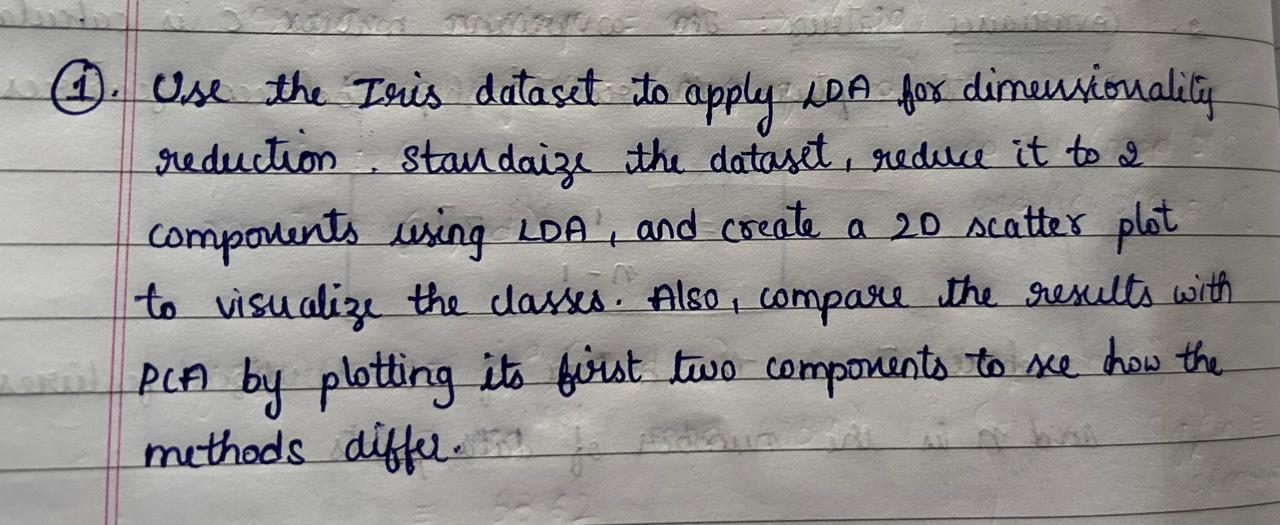 ①. Use the Iris dataset to apply LDA for dimensionality
reduction. Standaize the dataset, reduce it to 2
components using LDA, and create a 2D scatter plot
to visualize the classes. Also, compare the results with
PCA by plotting its first two components to see how the
methods differ.